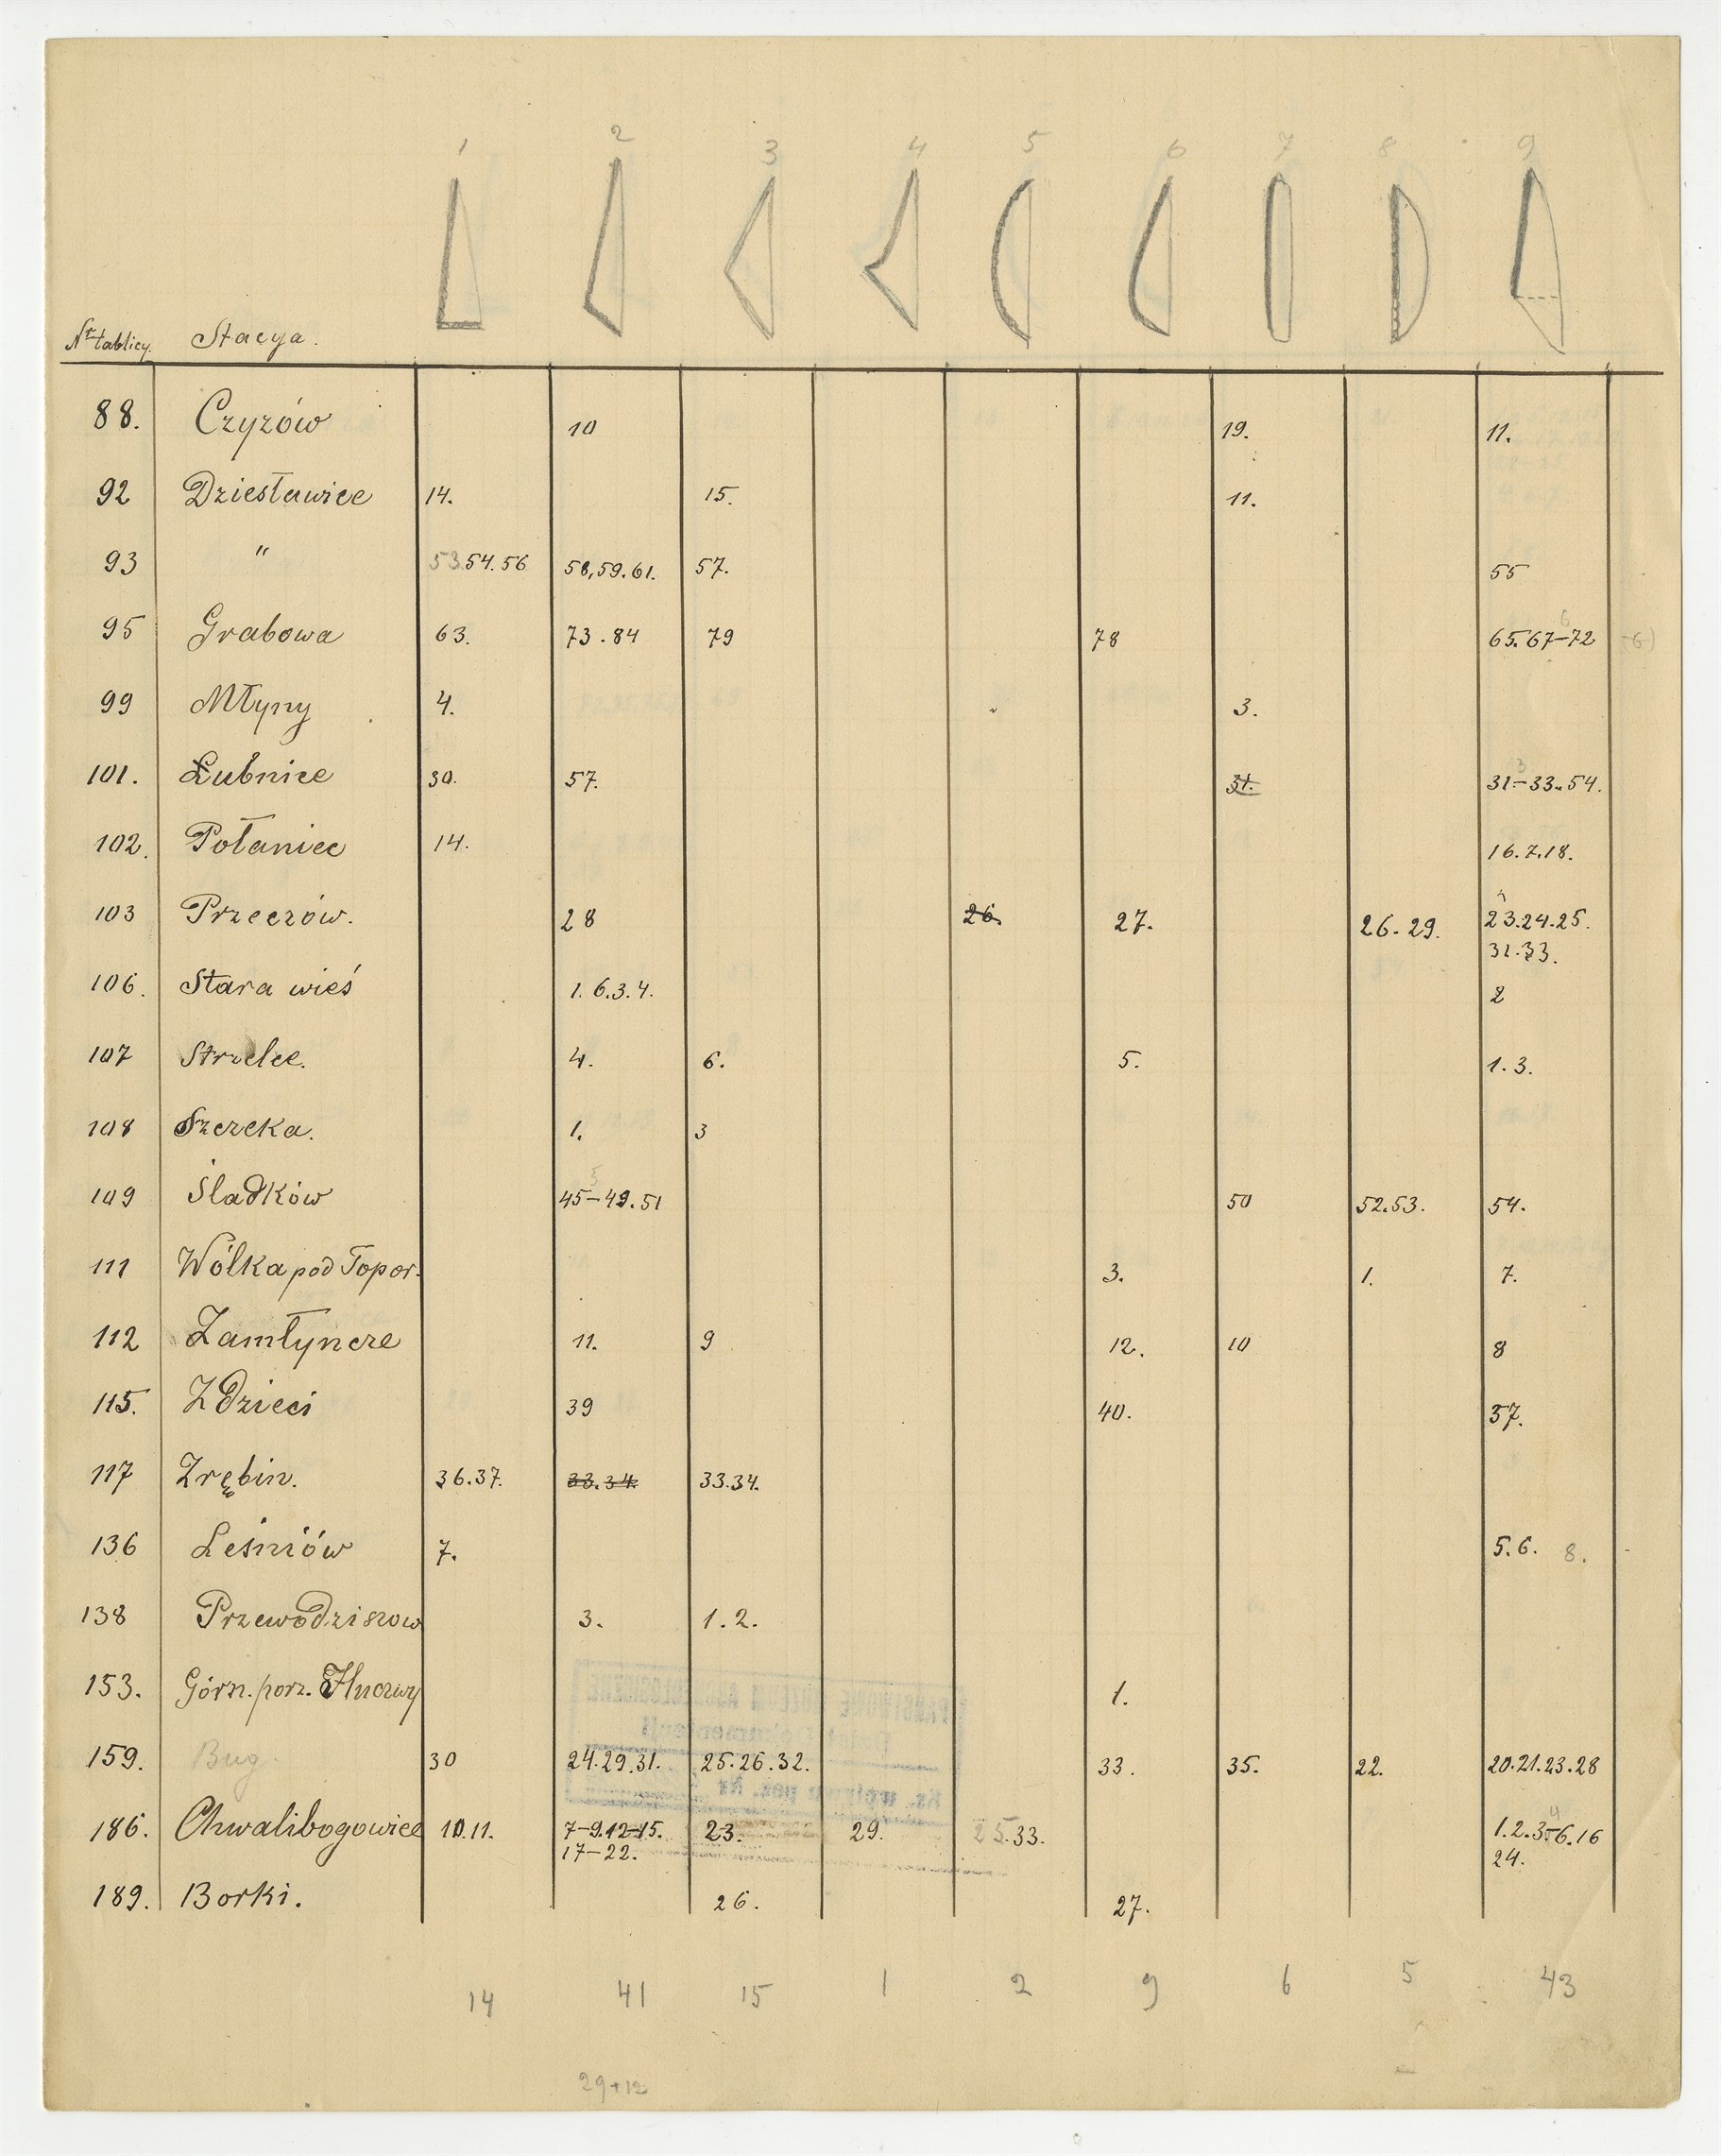 1 2 3 4 5 6 7 8 9
Nr tablicy. Stacya.
88. Czyżów 10 19. 11.
92 Dziesławice 14. 15. 11.
93 " 53.54.56 58,59.61. 57. 55
95 Grabowa 63. 73.84 79 78 65.67-72 -6)
6
99 Młyny 4. 3.
101. Łubnice 30. 57. 31. 31-33.54.
3
102. Połaniec 14. 16.7.18.
103 Przeczów. 28 26. 27. 26.29. 23.24.25.
31.33.
106. Stara wieś 1.6.3.4. 2
107 Strzelce. 4. 6. 5. 1.3.
108 Szczeka. 1. 3
109 Śladków 45-49.51 50 52.53. 54.
5
111 Wólka pod Topor. 3. 1. 7.
112 Zamłyncze 11. 9 12. 10 8
115. Zdzieci 39 40. 37.
117 Zrębin. 36.37. 33.34. 33.34.
136 Leśniów 7. 5.6. 8.
138 Przewodziszow 3. 1.2.
153. Górn. porz. 1.
159. Bug. 30 24.29.31. 25.26.32. 33. 35. 22. 20.21.23.28
186. Chwalibogowice 10.11. 7-9.12-15. 23. 29. 25.33. 1.2.3-6.16
4
17-22. 24.
189. Borki. 26. 27.
14 41 15 1 2 9 6 5 43
29+12